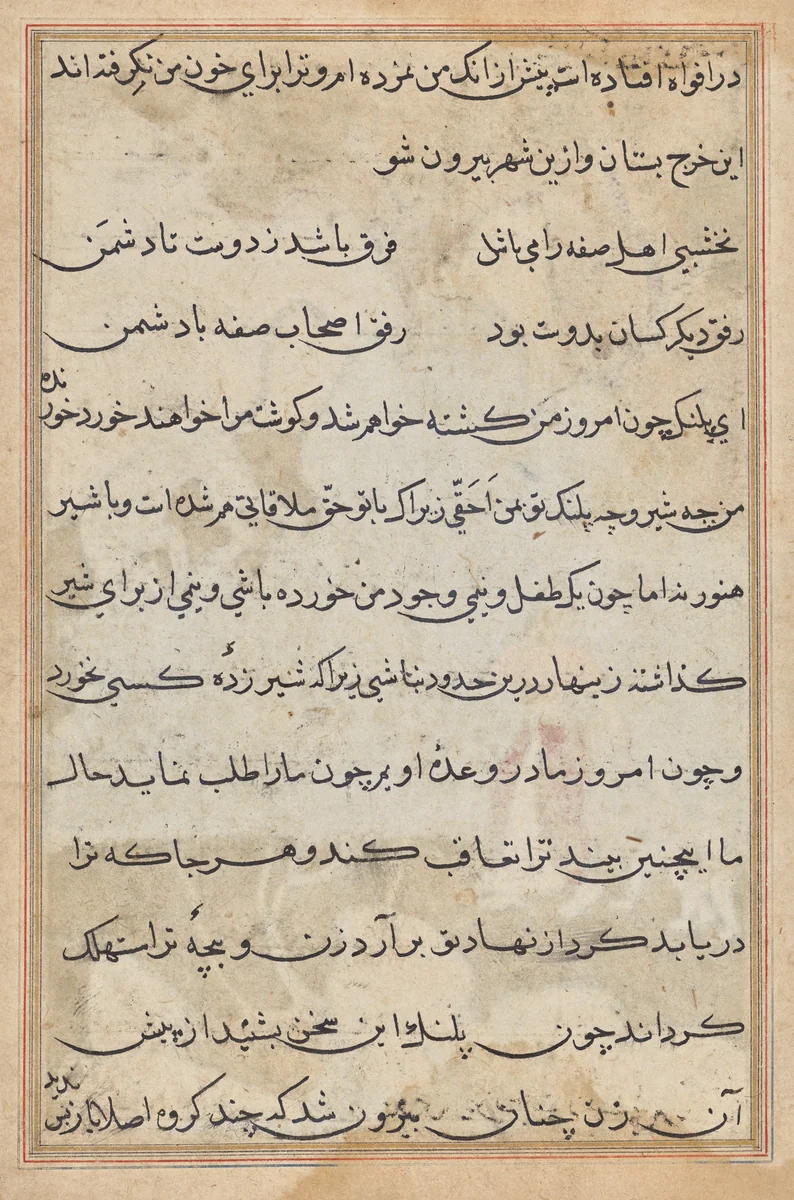 در افواه افتاده است پیش از انک من بمزده ام و ترا برای خون من نکرفته اند
این خرج بستان و ازین شهر بیرون شو
نخشبی اهل صفه را می باشد فرق باشد ز دوست تا دشمن
رفق دیکر کسان بدوست بود رفق اصحاب صفه باد شمن
ای پلنک چون امروز من کشته خواهم شد و کوشت مرا خواهند خورد خورنده
من چه شیر و چه پلنک تو بمن اَحَقّی زیراک با تو حقّ ملاقاتی هم شده است و با شیر
هنوز نه اما چون یک طفل و نیمی وجود من خورده باشی و نیمی از برای شیر
کذاشته زینهار درین حدود نباشی زیراکه شیر زدهٔ کسی نخورد
و چون امروز ما در وعدهٔ او یم چون ما را طلب نماید حال
ما اینچنین بیند ترا تعاقب کند و هر جا که ترا
دریابد کرد از نهاد تو بر آرد زن و بچهٔ ترا مستهلک
کرداند چون پلنک این سخن بشنید از پیش
آن زن چنان بیرون شد که چند کروه اصلا باز پس ندید